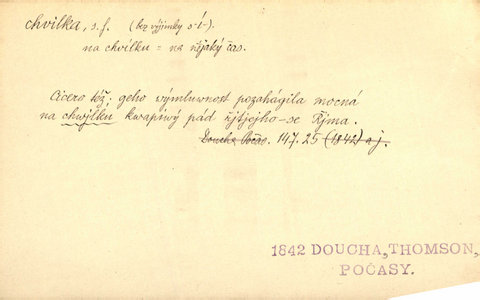 chvilka, s. f. (bez výjimky s -í-).
na chvilku = na nějaký čas.
Cicero též: geho wýmluwnost pozahágila mocná
na chwjlku kwapiwý pád řjtjcjho-se Řjma.
Doucha Počas. 147. 25 (1842) a j.
1842 DOUCHA, THOMSON,
POČASY.